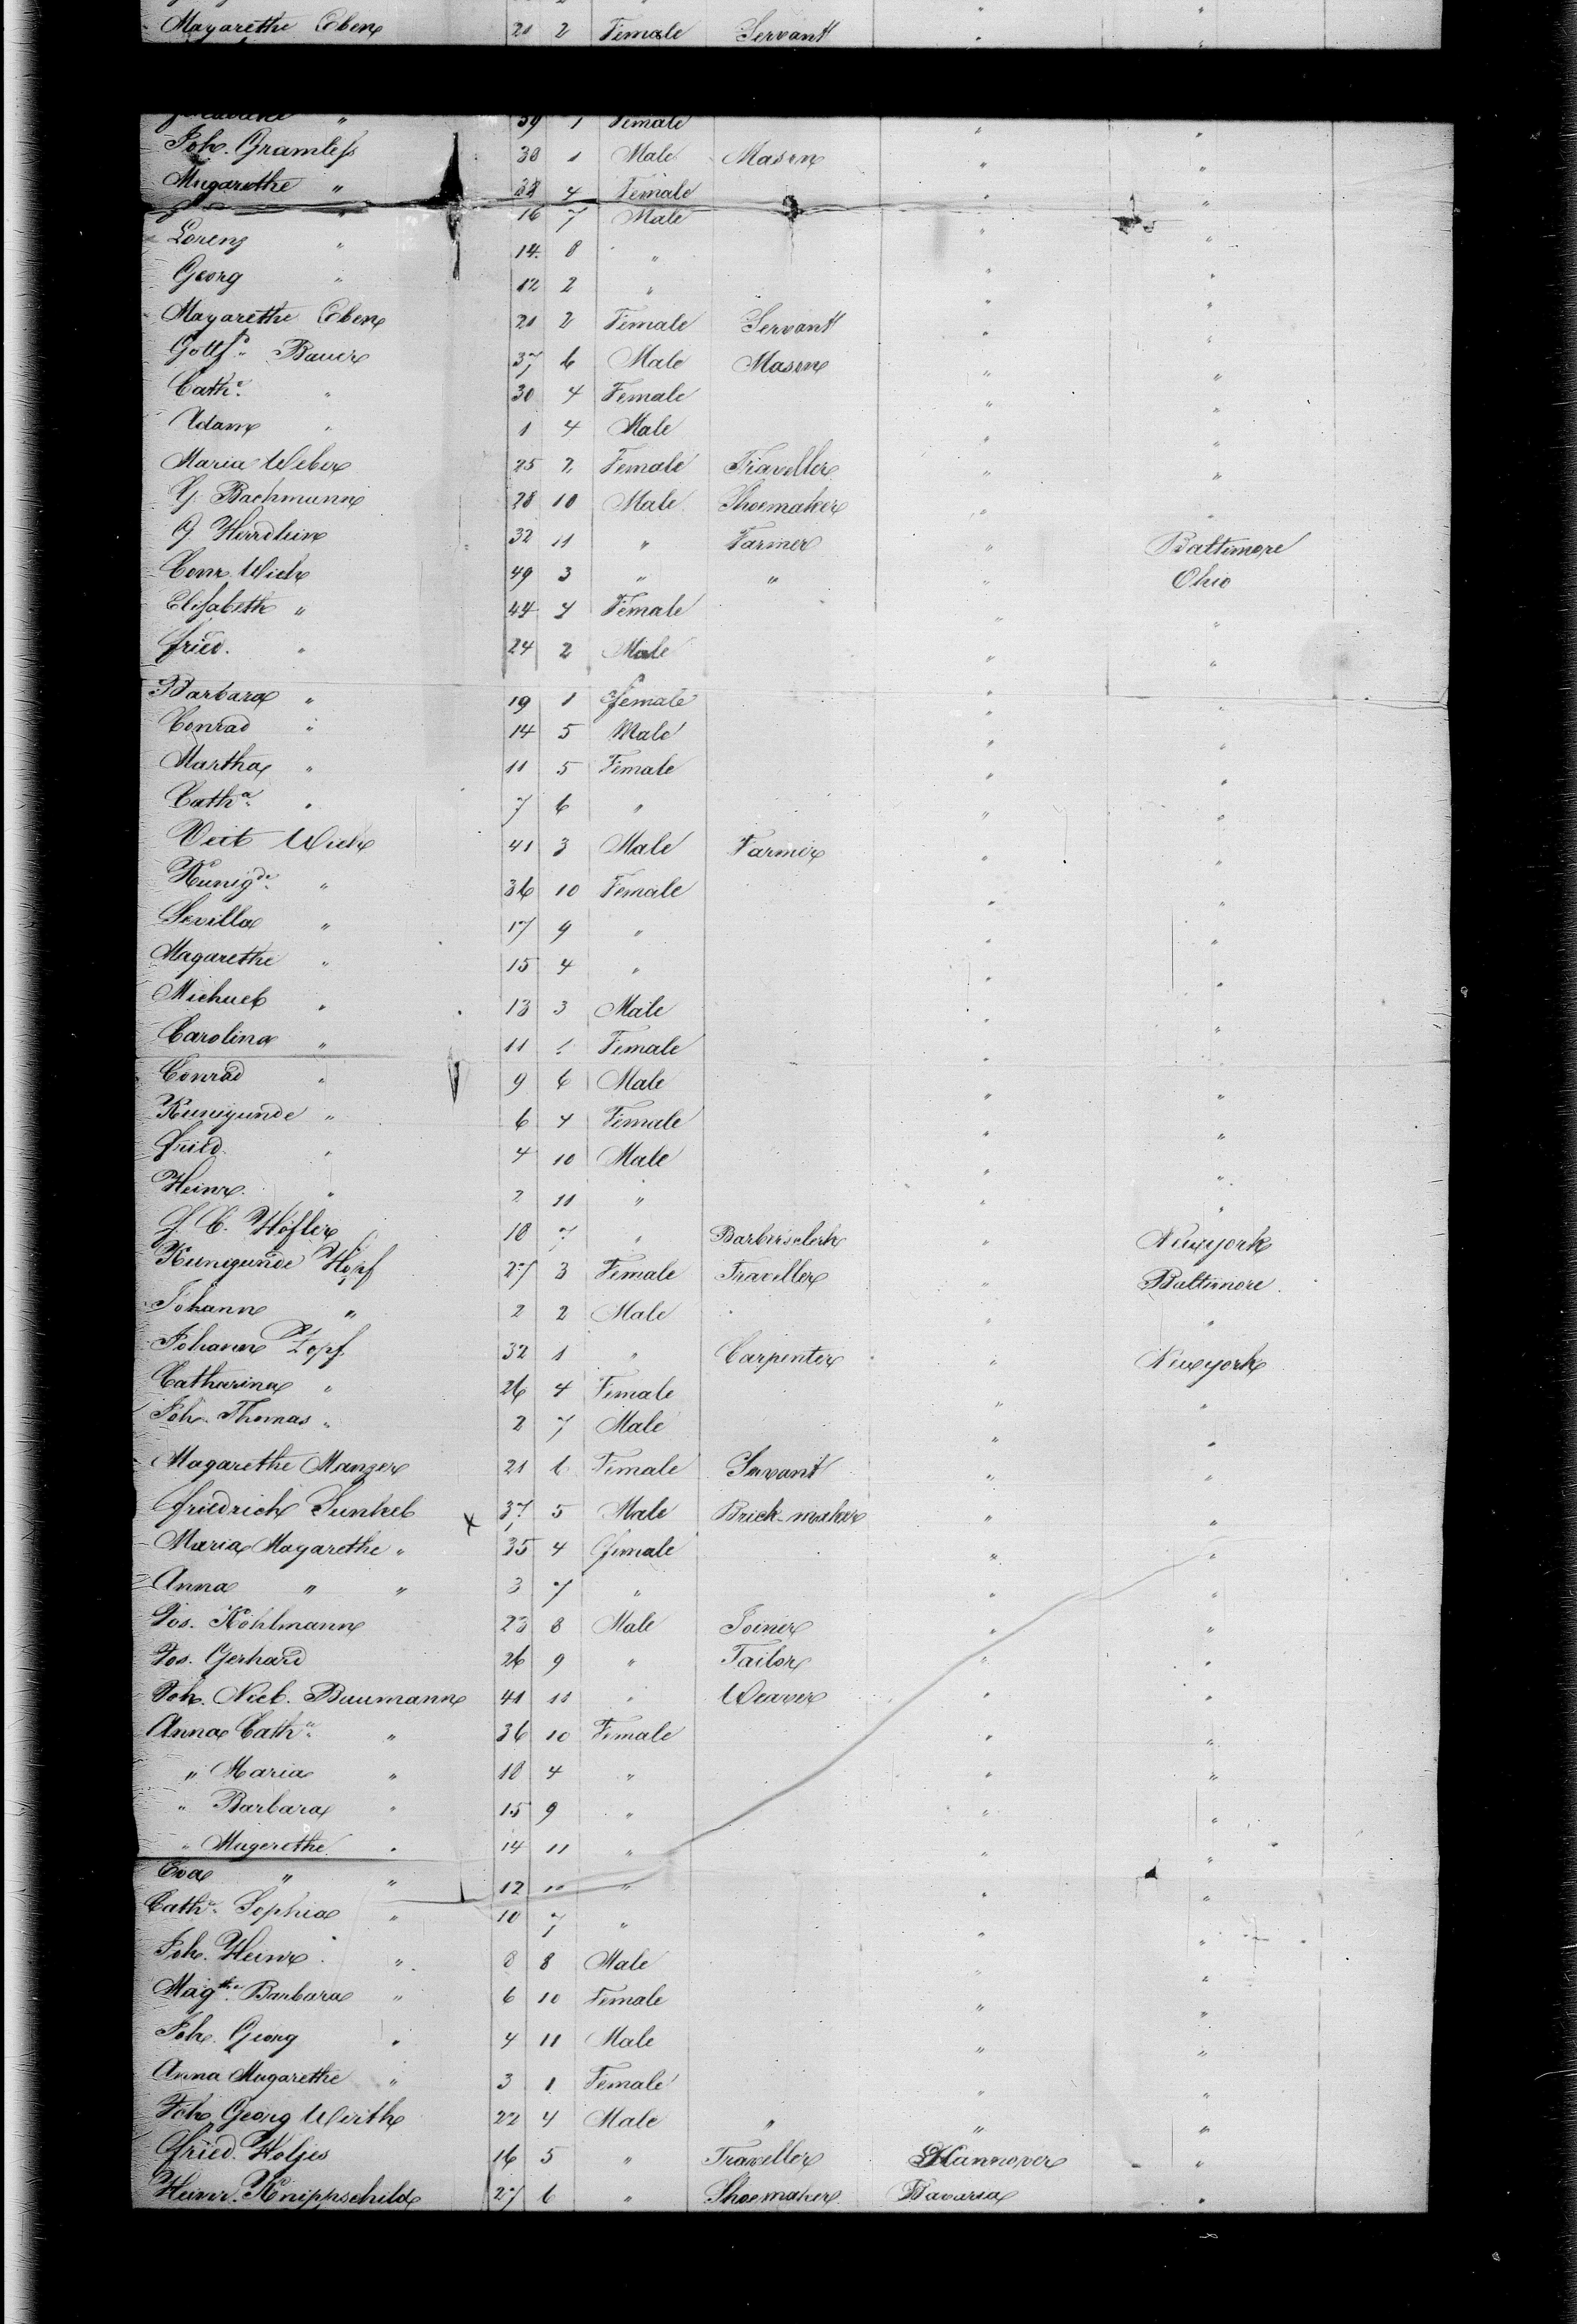 Magarethe Eben 21 2 Female Servant " "
" 39 1 Female " "
Joh. Gramless 38 1 Male Mason " "
Magarethe " 38 4 Female " "
" 16 7 Male " "
Lorenz " 14 8 " " "
Georg " 12 2 " " "
Magarethe Eben 21 2 Female Servant " "
Gottfd. Bauer 37 6 Male Mason " "
Cathe. " 30 4 Female " "
Adam " 1 4 Male " "
Maria Weber 25 2 Female Traveller " "
G. Bachmann 28 10 Male Shoemaker " "
G Herrdlein 32 11 " Farmer " Baltimore
Conr. Wich 49 3 " " " Ohio
Elisabeth " 44 7 Female " "
Fried. " 24 2 Male " "
Barbara " 19 1 Female " "
Conrad " 14 5 Male " "
Martha " 11 5 Female " "
Catha. " 7 6 " " "
Veit Wich 41 3 Male Farmer " "
Kunigde. " 36 10 Female " "
Sevilla " 17 9 " " "
Magarethe " 15 4 " " "
Michael " 13 3 Male " "
Carolina " 11 Female " "
Conrad " 9 6 Male " "
Kunigunde " 6 4 Female " "
Fried. " 4 10 Male " "
Heinr. " 2 11 " " "
J. C. Höfler 18 7 " Barbersclerk " Newyork
Kunigunde Hopf 27 3 Female Traveller " Baltimore.
Johann " 2 2 Male " "
Johann Zopf 32 1 " Carpenter " Newyork
Catharina " 26 4 Female " "
Joh. Thomas " 2 7 Male " "
Magarethe Manger 21 6 Female Servant " "
Friedrich Sunkel x 37 5 Male Brick-maker " "
Maria Magarethe " 35 4 Female " "
Anna " " 3 7 " " "
Jos. Köhlmann 23 8 Male Joiner " "
Jos. Gerhard 26 9 " Tailor " "
Joh. Nicl. Baumann 41 11 " Weaver " "
Anna Catha. " 36 10 Female " "
" Maria " 18 4 " " "
" Barbara " 15 9 " " "
" Magerethe " 14 11 " " "
Eva " " 12 " " " "
Catha. Sophia " 10 7 " " "
Joh. Heinr. " 8 8 Male " "
Magthe. Barbara " 6 10 Female " "
Joh. Georg " 4 11 Male " "
Anna Magarethe " 3 1 Female " "
Joh. Georg Wirth 22 4 Male " " "
Fried. Holjes 16 5 " Traveller Hannover "
Heinr. Knippschild 27 6 " Shoemaker Bavaria "